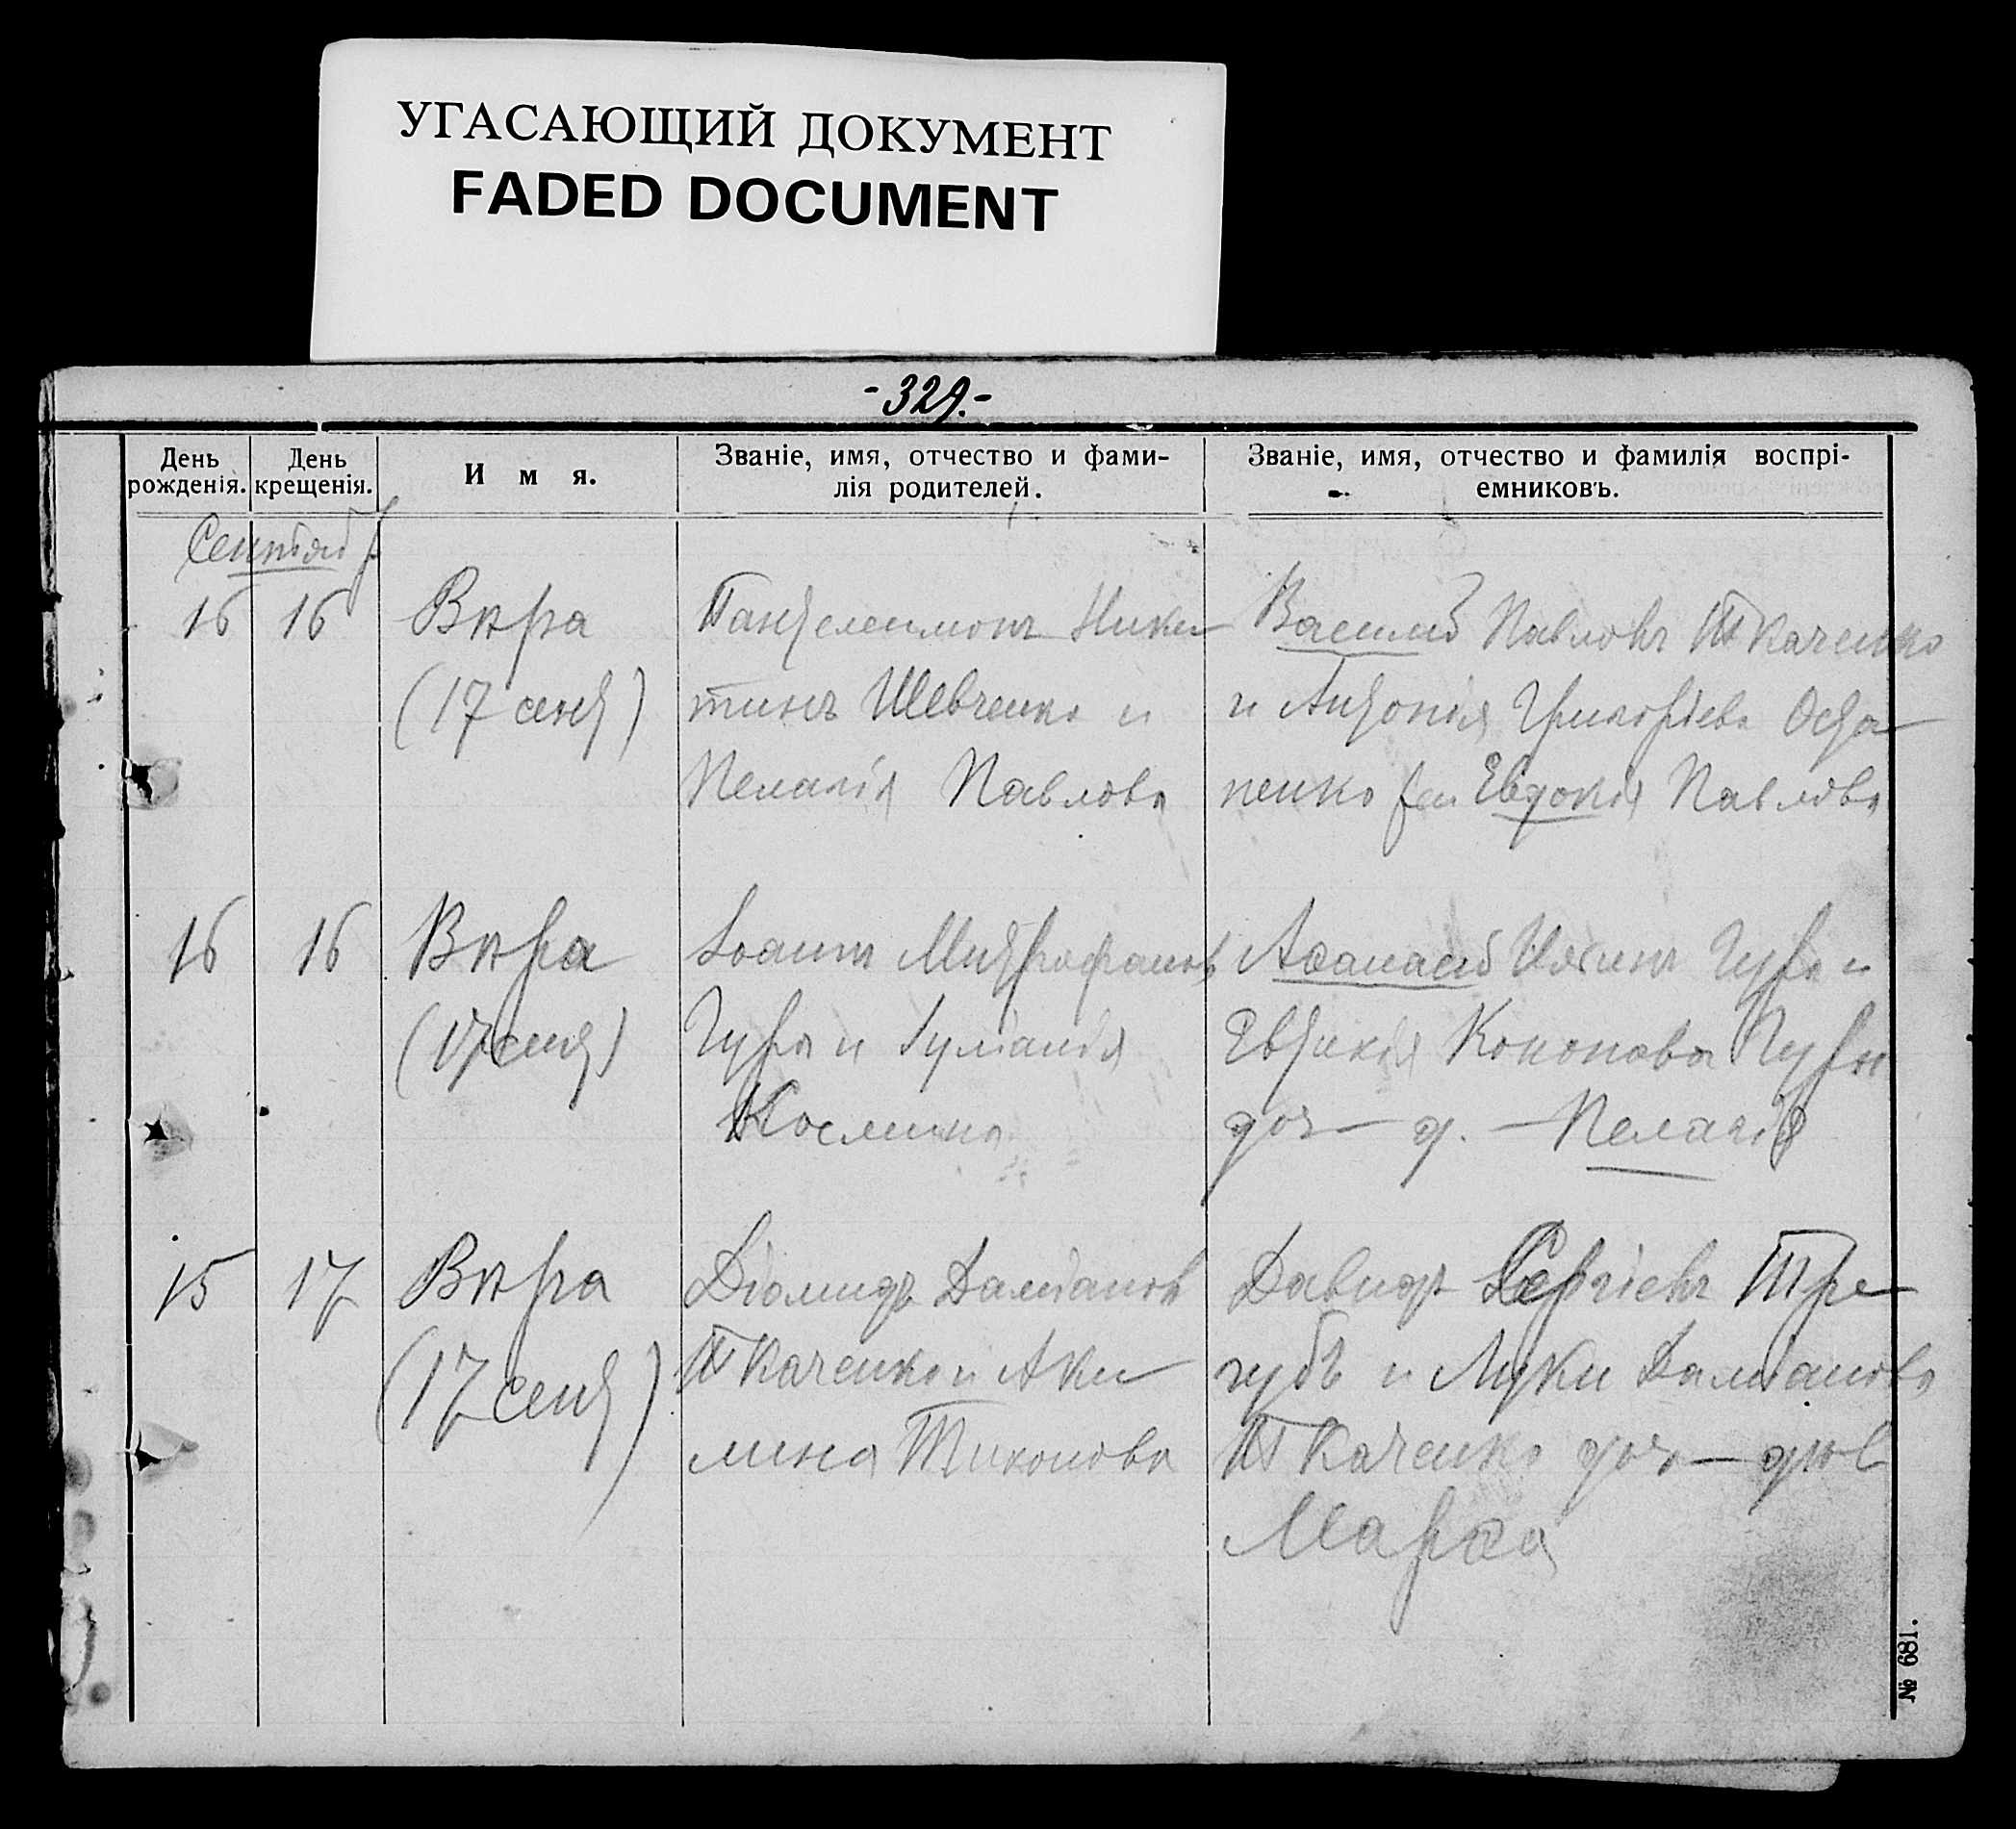 УГАСАЮЩИЙ ДОКУМЕНТ
FADED DOCUMENT
-329.-
День рожденія.
День крещенія.
И м я.
Званіе, имя, отчество и фами-
лія родителей.
Званіе, имя, отчество и фамилія воспрі-
емниковъ.
Сентябр
16 16 Вѣра
(17 сент)
Пантелеимонъ Ники
тинъ Шевченко и
Пелагія Павлова
Василій Павловъ Ткаченко
и Антонія Григоріева Оста
пенко Евдокія Павлова
16 16 Вѣра
(17 сент)
Іоаннъ Митрофановъ
Гура и Іуліанія
Космина
Аѳанасій Гура и
Евтихія Кононова Гуры
доч — д. — Пелагія
15 17 Вѣра
(17 сент)
Діомидъ Даміановъ
Ткаченко и Аки
лина Тихонова
Давидъ Сергіевъ Тре
губъ и Луки Даміанова
Ткаченко доч — дѣв
Марѳа
№ 681.